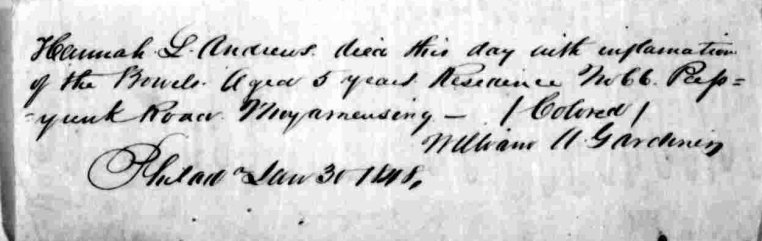 Hannah L. Andrews. died this day with inflamation
of the Bowels. Aged 5 years Residence No 66. Pas=
=yunk Road. Moyamensing — / Colored /
William A. Gardiner
Philada Jan 30 1848,